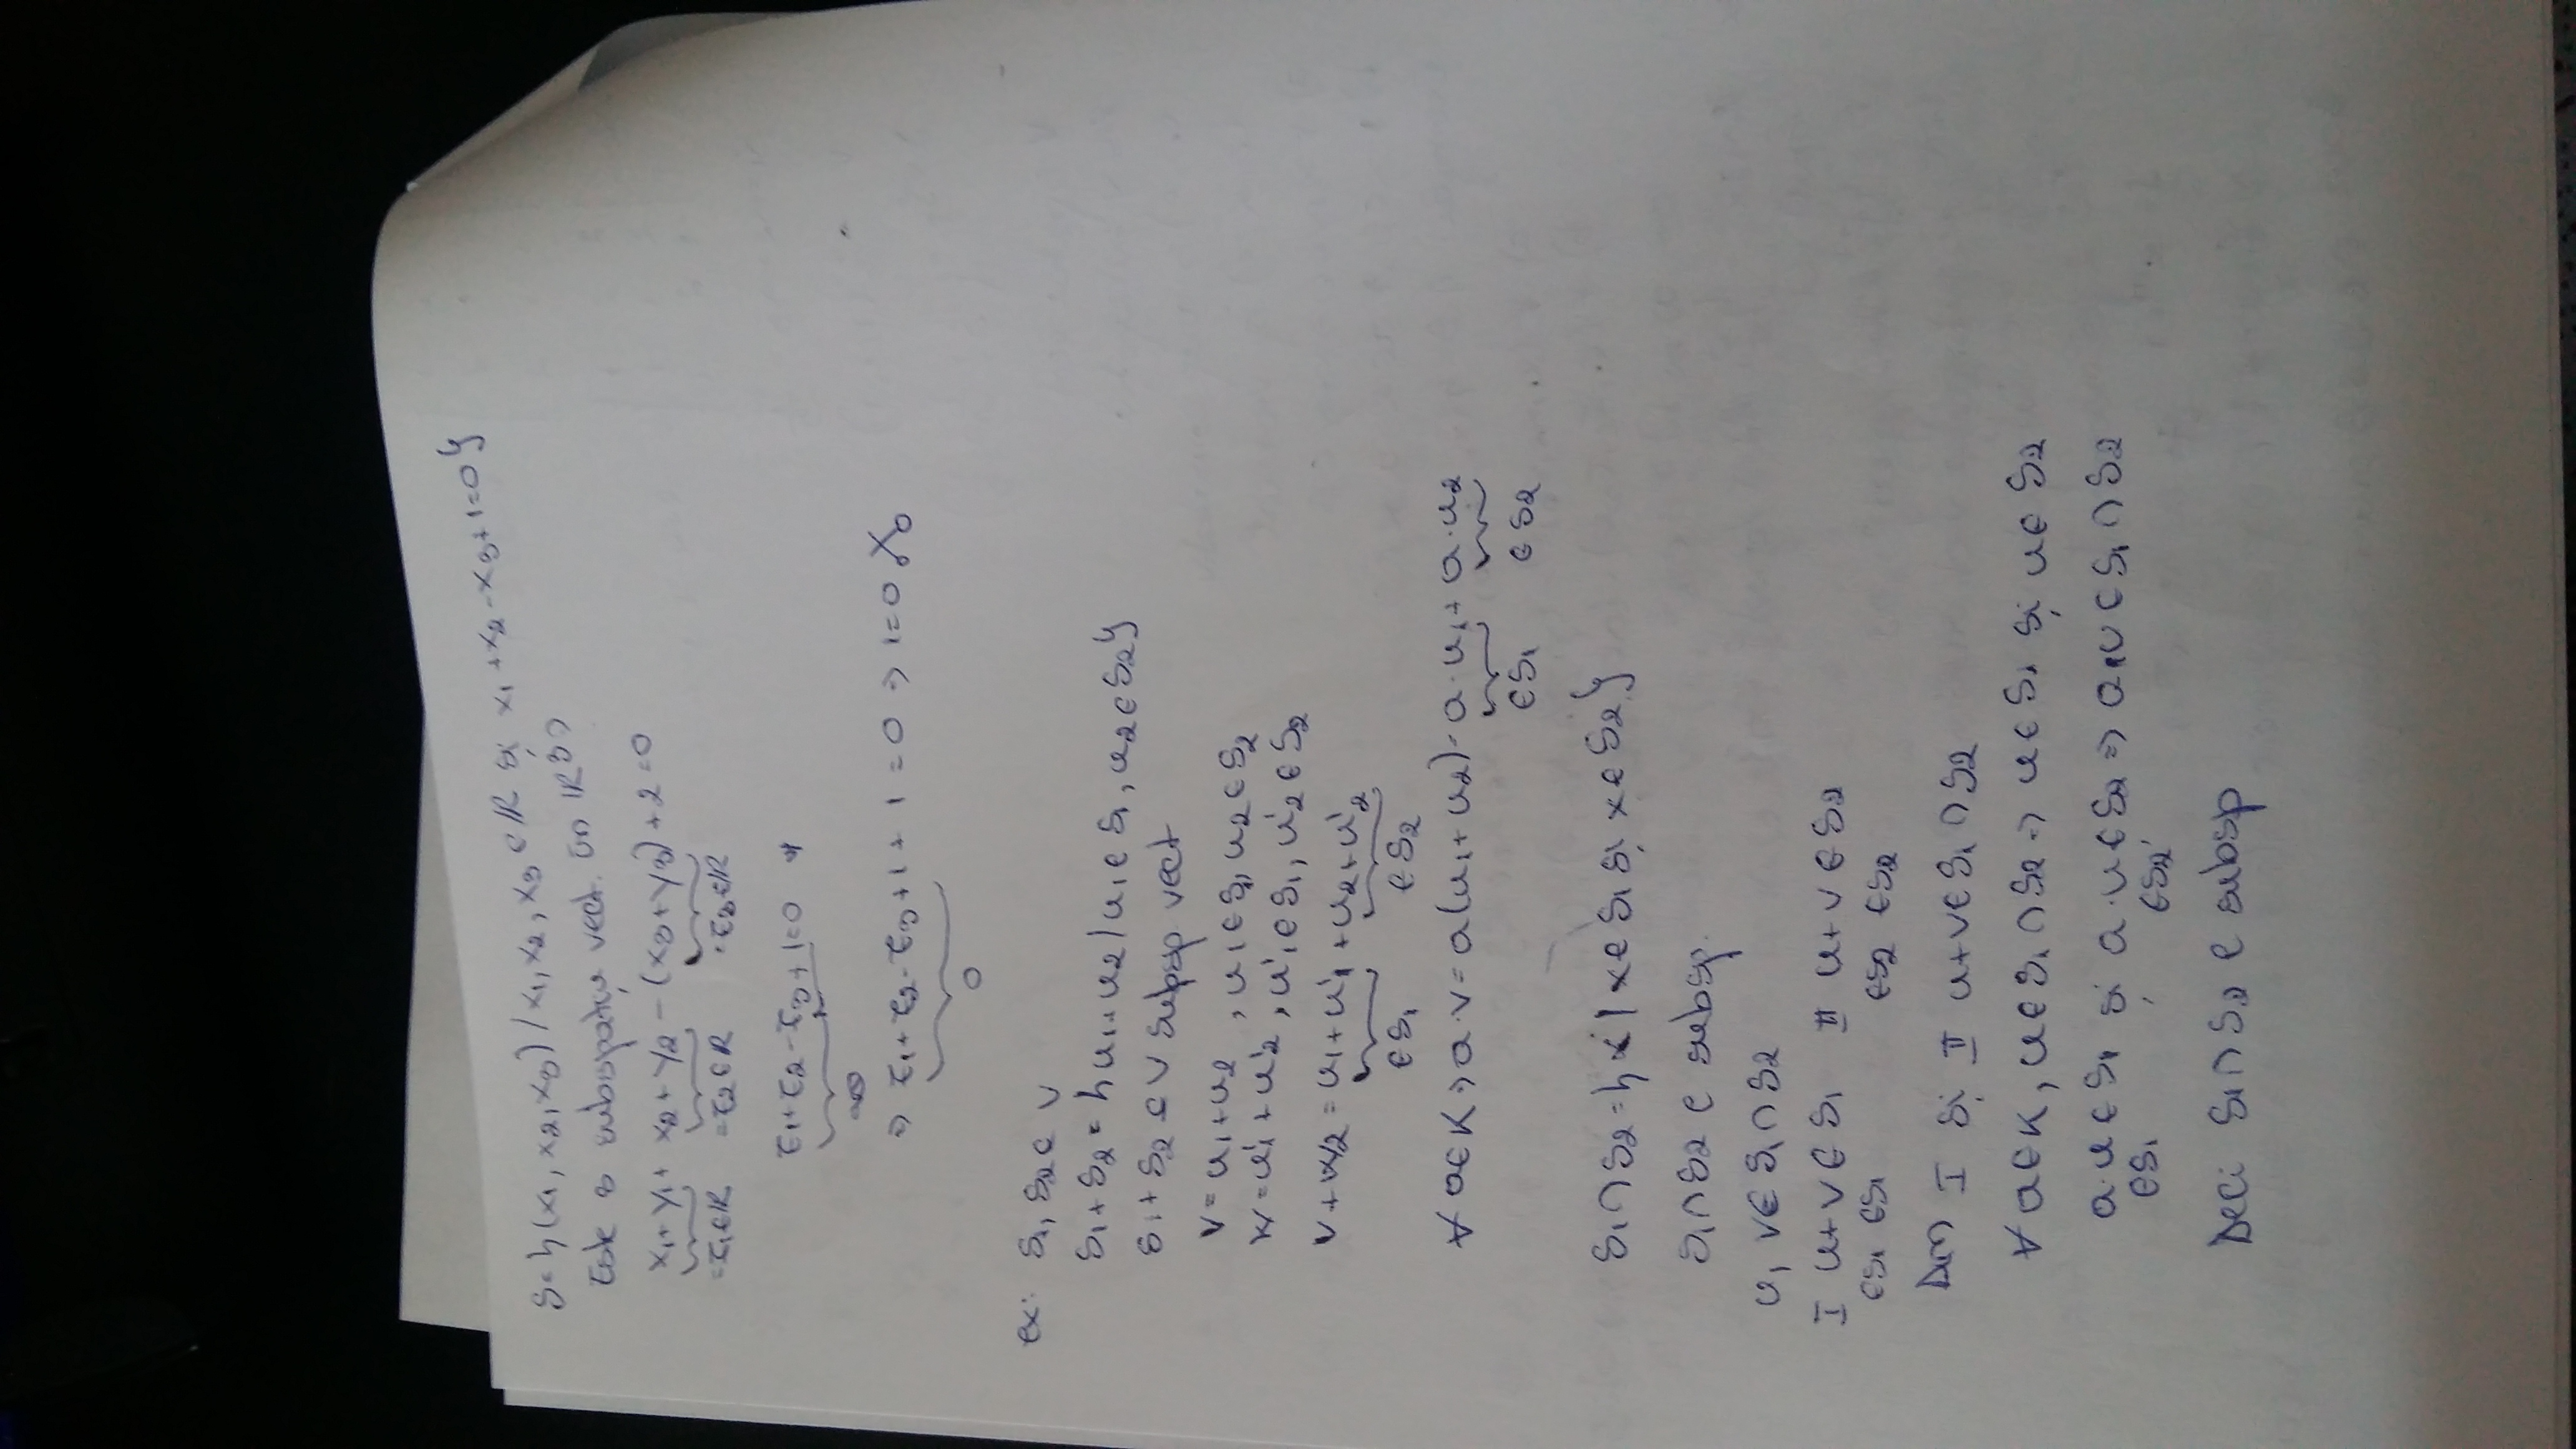 S={(x1, x2, x3) / x1, x2, x3 ∈ ℝ și x1 + x2 - x3 + 1 = 0}
Este S subspațiu vect. în ℝ3?
x1 + y1 + x2 + y2 - (x3 + y3) + 2 = 0
= z1 ∈ ℝ = z2 ∈ ℝ = z3 ∈ ℝ
z1 + z2 - z3 + 1 = 0 *
⇒ z1 + z2 - z3 + 1 + 1 = 0 ⇒ 1 = 0
0
ex: S1, S2 ⊂ V
S1 + S2 = {u1 + u2 / u1 ∈ S1, u2 ∈ S2}
S1 + S2 ⊂ V subsp vect
v = u1 + u2, u1 ∈ S1, u2 ∈ S2
w = u'1 + u'2, u'1 ∈ S1, u'2 ∈ S2
v + w = u1 + u'1 + u2 + u'2
∈ S1 ∈ S2
∀ a ∈ K ⇒ a·v = a(u1 + u2) = a·u1 + a·u2
∈ S1 ∈ S2
S1 ∩ S2 = {x | x ∈ S1 și x ∈ S2}
S1 ∩ S2 e subsp.
u, v ∈ S1 ∩ S2
I u + v ∈ S1 II u + v ∈ S2
∈S1 ∈S1 ∈S2 ∈S2
Din I și II u + v ∈ S1 ∩ S2
∀ a ∈ K, u ∈ S1 ∩ S2 ⇒ u ∈ S1 și u ∈ S2
a·u ∈ S1 și a·u ∈ S2 ⇒ a·u ∈ S1 ∩ S2
∈S1 ∈S2
Deci S1 ∩ S2 e subsp